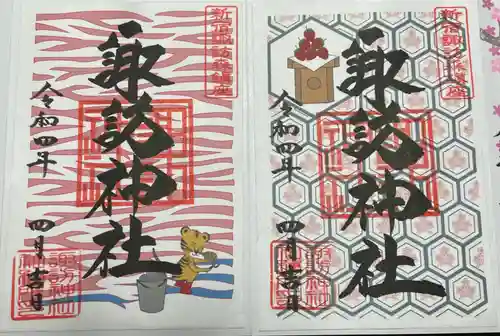 新宿諏訪森鎮座
諏訪神社
令和四年
四月吉日
諏訪神社
新宿諏訪森鎮座
諏訪神社
令和四年
四月吉日